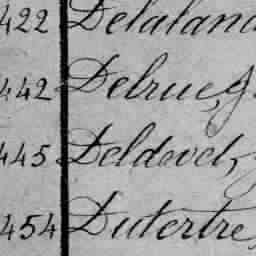 422 Delaland
442 Delrue, J.
445 Deldevel,
454 Dutertre,